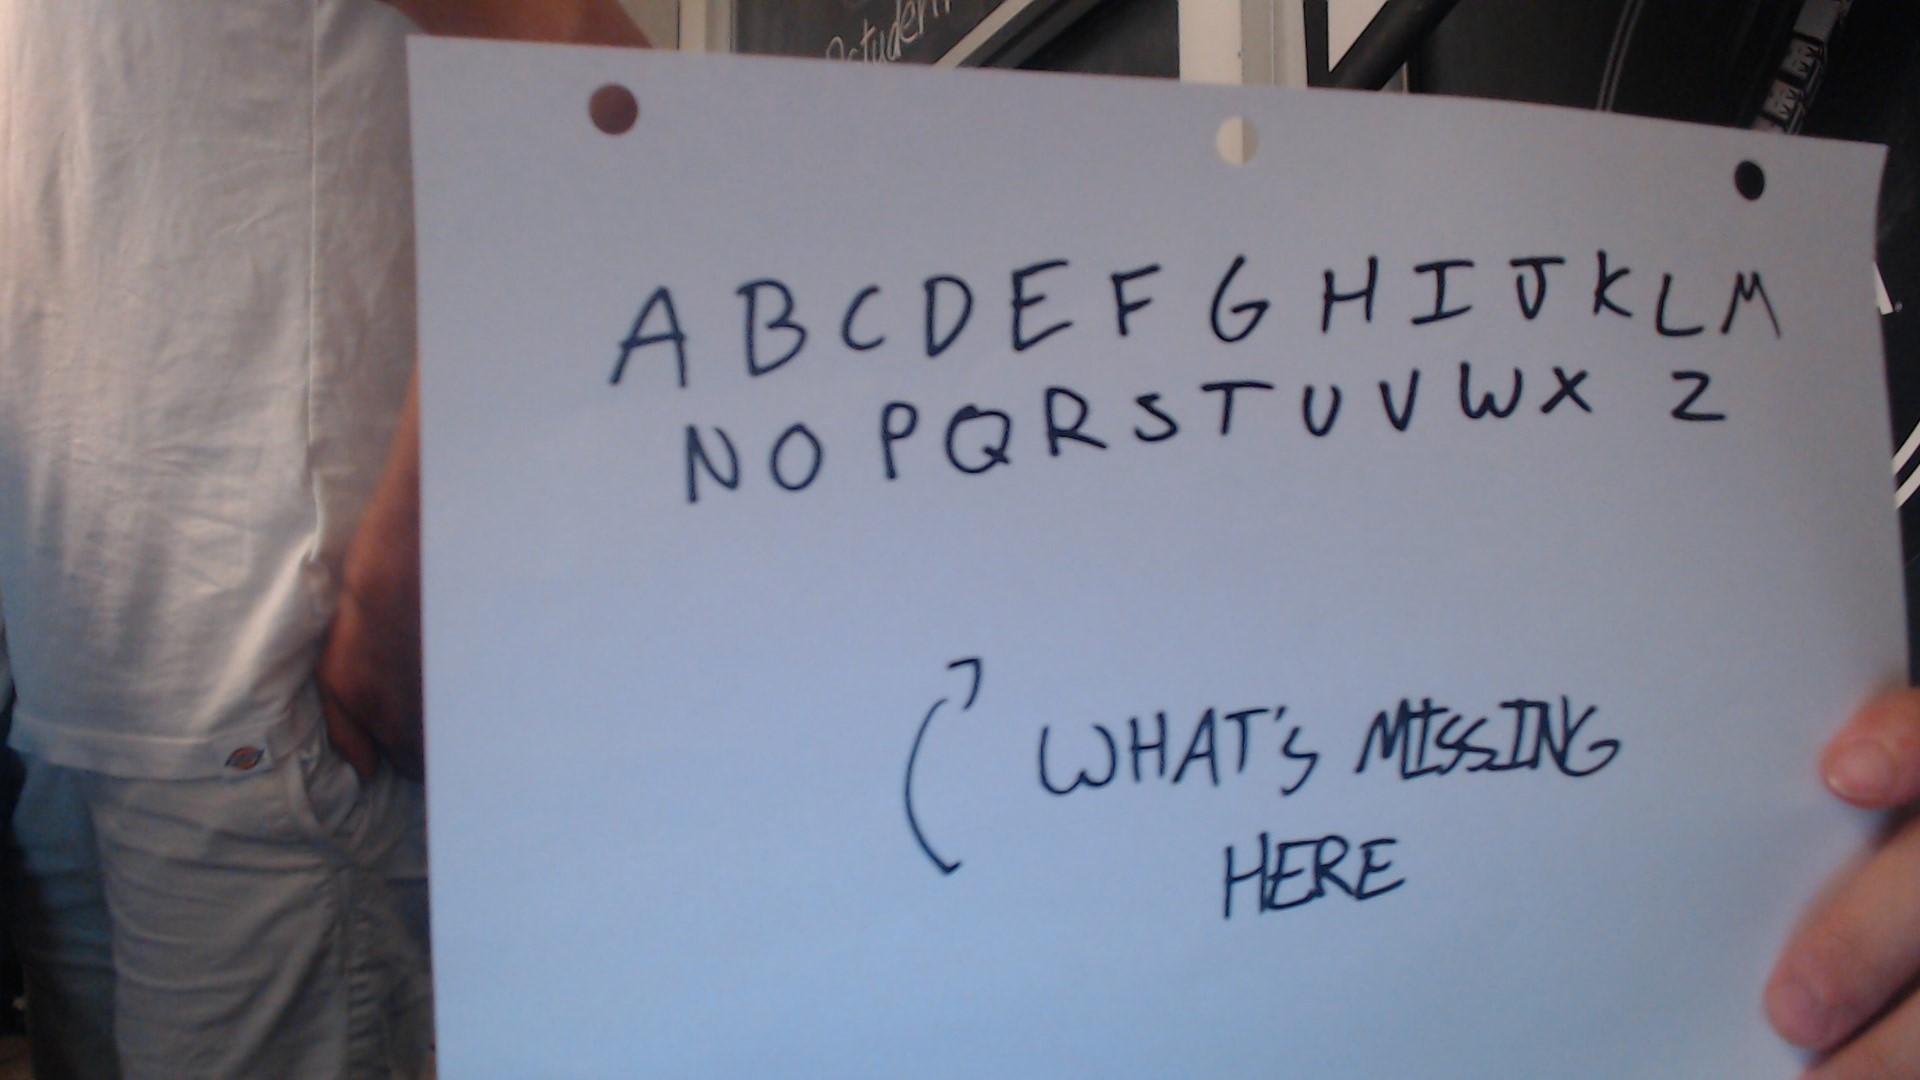 student
A B C D E F G H I J K L M
N O P Q R S T U V W X Z
WHAT'S MISSING
HERE